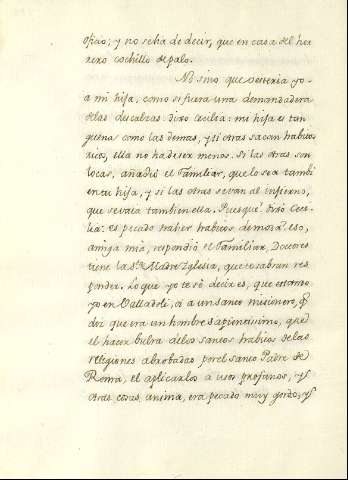 oficio; y no se ha de decir, que en casa del her
rero cochillo de palo.
No sino que vesteria yo
a mi hija, como si fuera una demandadera
de las descalzas: dixo Cecilia: mi hija es tan
buena como las demas, y si otras sacan habitos
ricos, ella no ha de ser menos. Si las otras son
locas, añadió el Familiar, que lo sea tambi
en tu hija, y si las otras se van al infierno,
que se vaia tambien ella. Pues que? dixó Ceci-
lia: es pecado traher habitos de moda? eso,
amiga mia, respondió el Familiar, Doctores
tiene la Sta Madre Iglesia, que te sabran res
ponder. Lo que yo te só decir es, que estando
yo en Valladoli, oí a un santo misionero, q
dri que era un hombre sapientisimo, que
el hacer bulra de los santos habitos de las
religiones abrobadas por el santo Padre de
Roma, el aplicarlos a usos profanos, y
otras cosas ansina, era pecado muy gordo, y